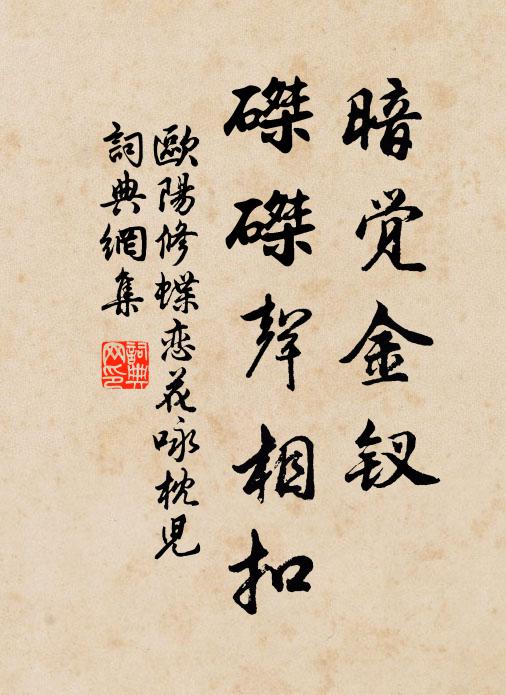 暗觉金钗
磔磔聲相扣
歐陽修蝶恋花咏枕児
詞典網集
詞典網印